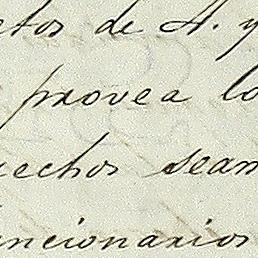 tos de A. y
provea lo
echos sean
uncionarios